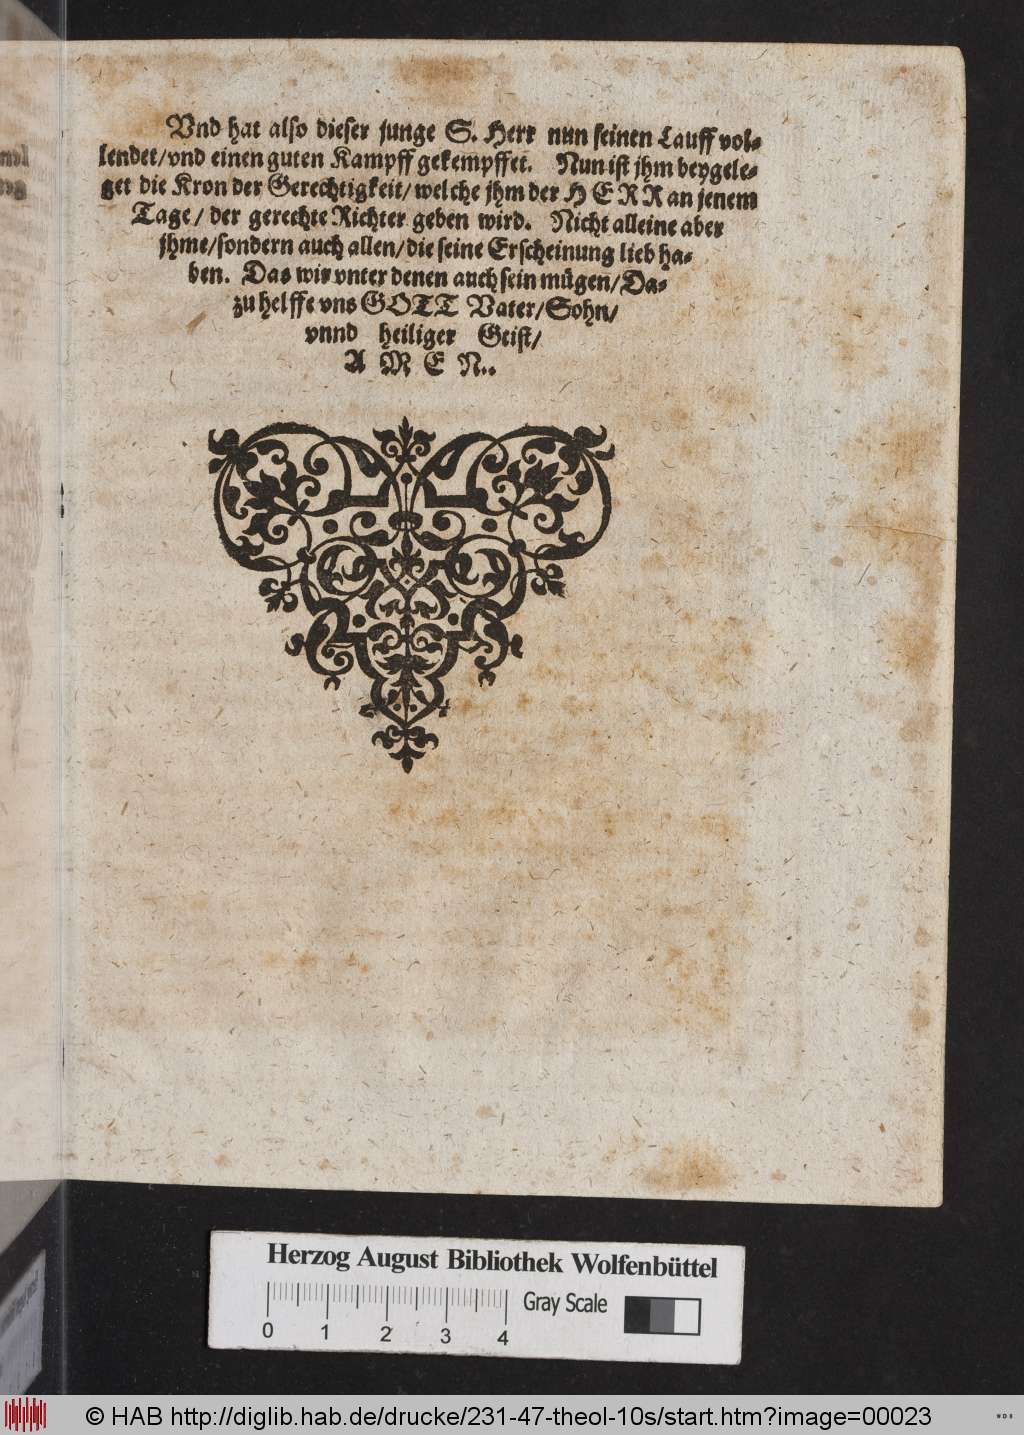 Vnd hat also dieser junge S. Herr nun seinen Lauff vol-
lendet/vnd einen guten Kampff gekempffet. Nun ist jhm beygele-
get die Kron der Gerechtigkeit/ welche jhm der HERR an jenem
Tage/ der gerechte Richter geben wird. Nicht alleine aber
jhme/sondern auch allen/die seine Erscheinung lieb ha-
ben. Das wir vnter denen auch sein mügen/Da-
zu helffe vns GOTT Vater/Sohn/
vnnd heiliger Geist/
A M E N..
Herzog August Bibliothek Wolfenbüttel
Gray Scale
0 1 2 3 4
© HAB http://diglib.hab.de/drucke/231-47-theol-10s/start.htm?image=00023